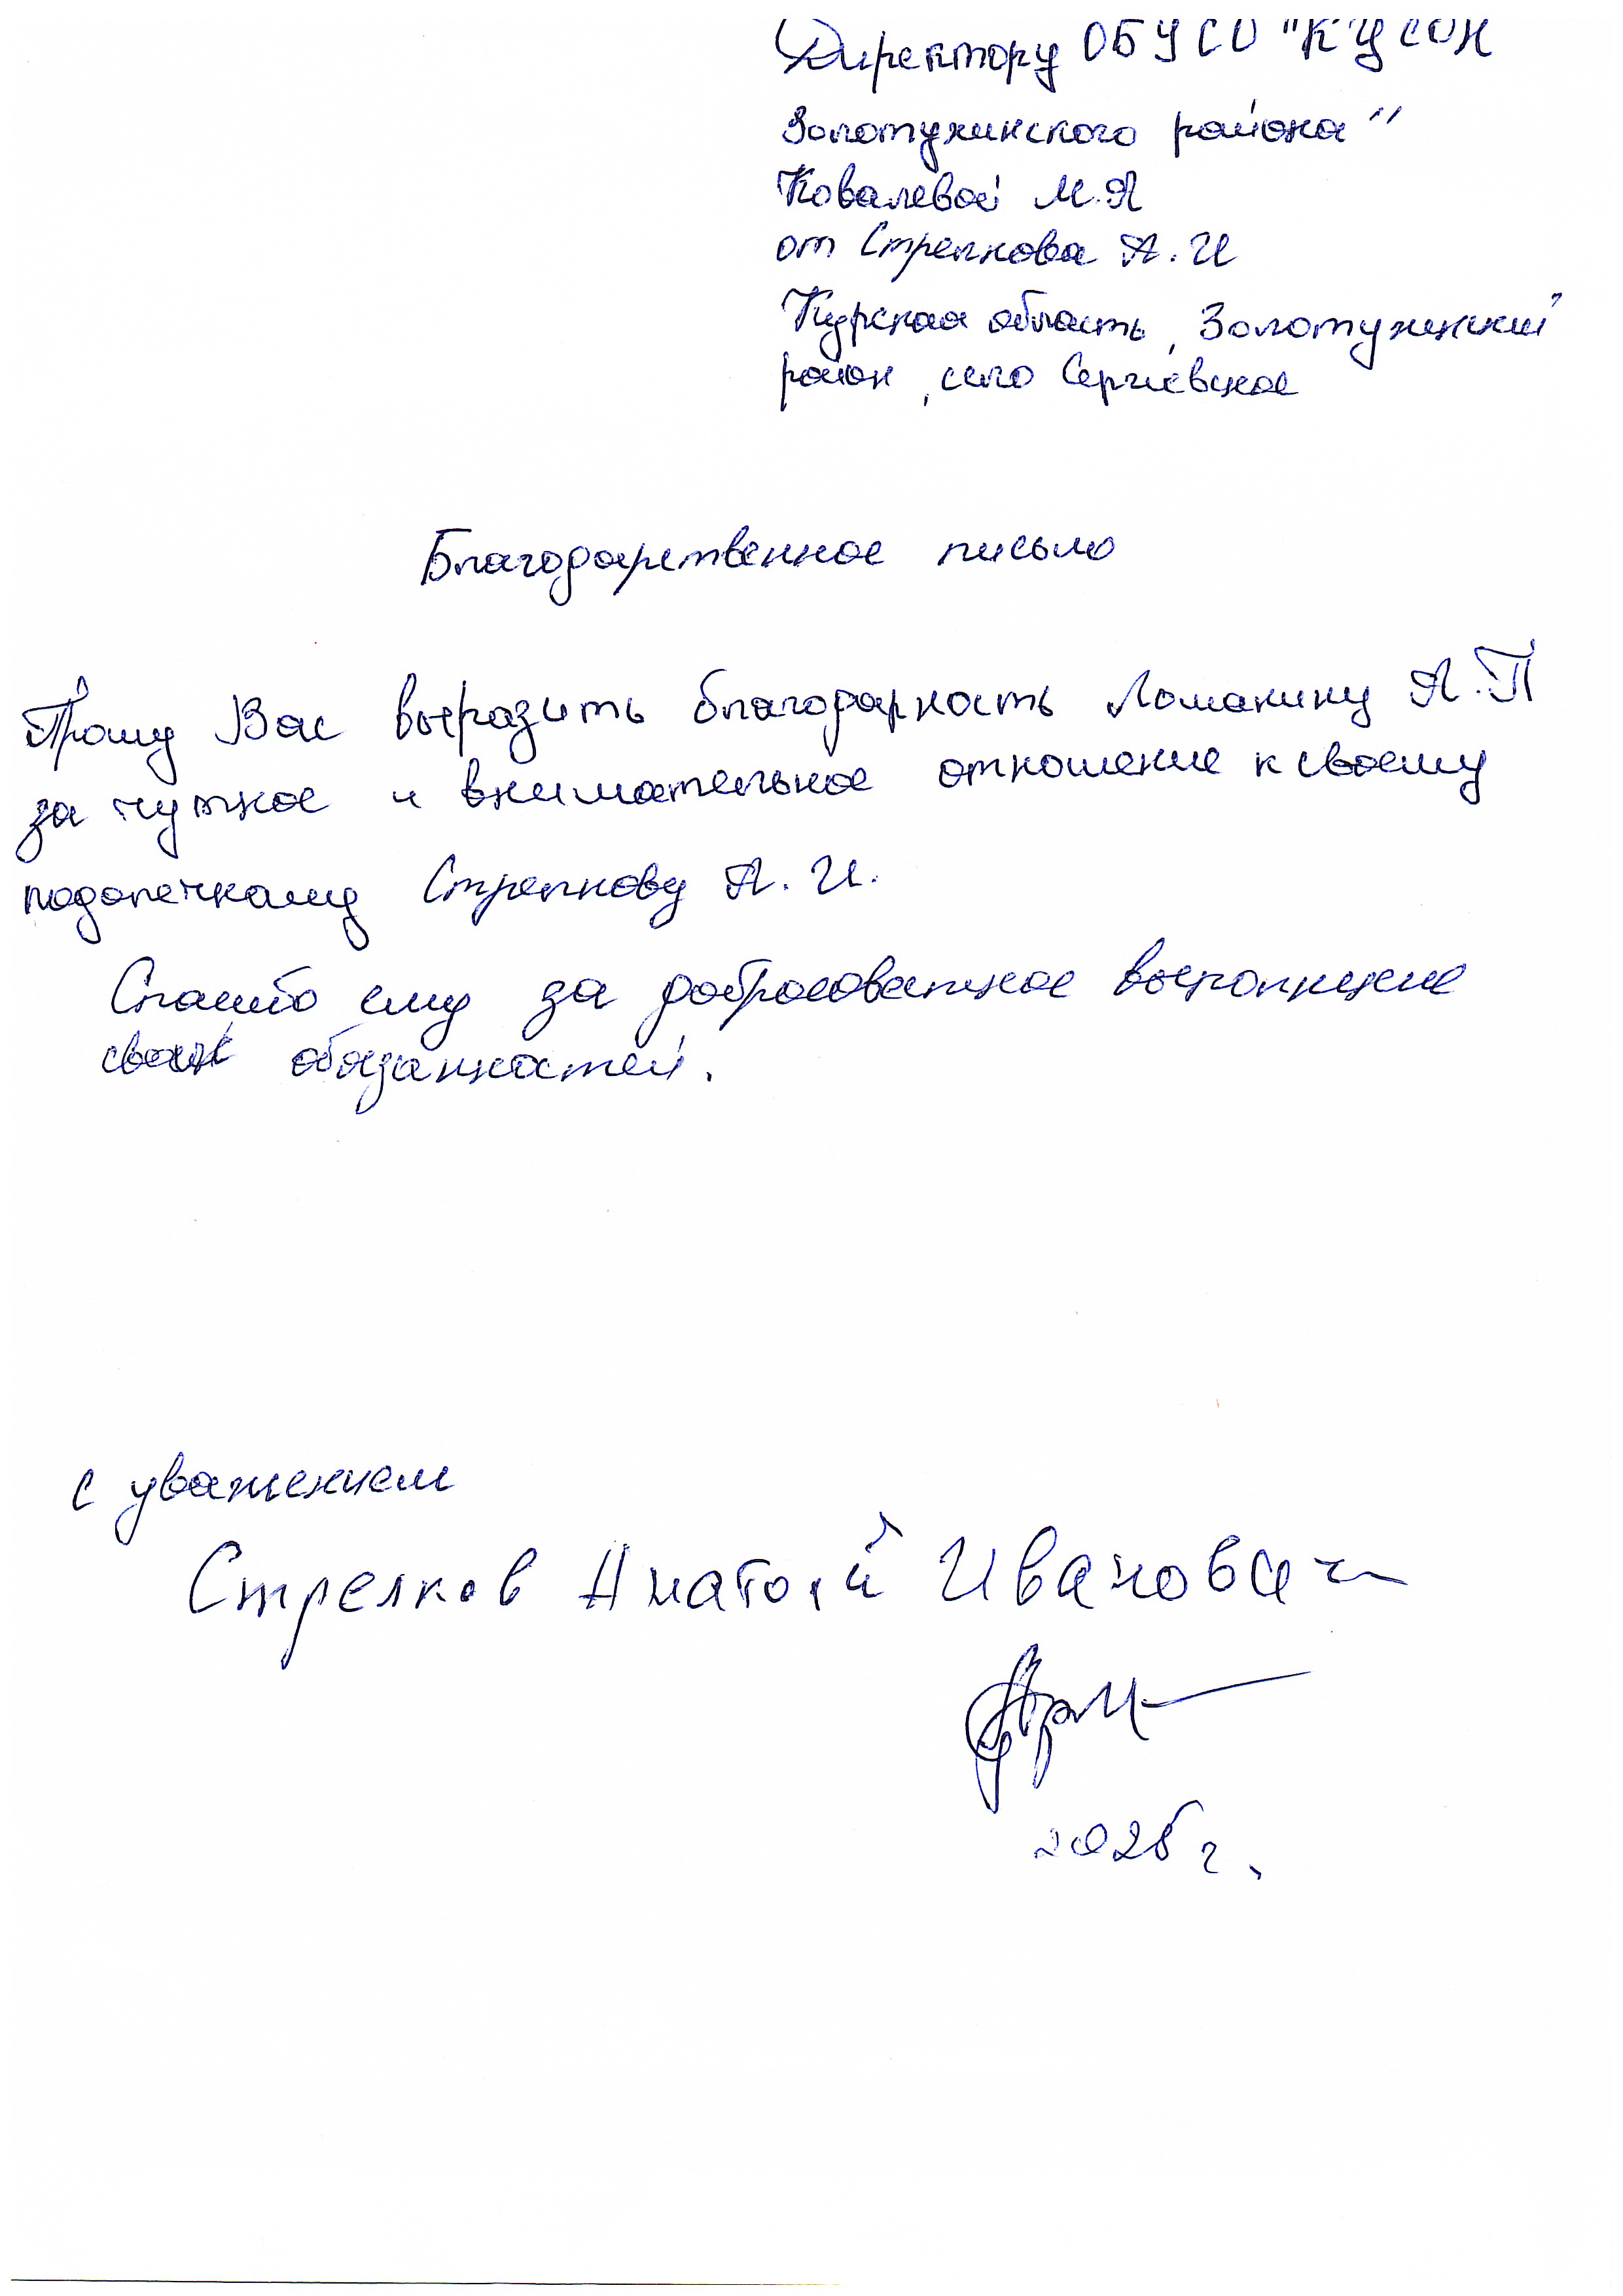 Директору ОБУСО "КЦСОН
Золотухинского района"
Ковалевой М.А
от Стрелкова А.И
Курская область, Золотухинский
район, село Сергиевское
Благодарственное письмо
Прошу Вас выразить благодарность Ломакину А.П
за чуткое и внимательное отношение к своему
подопечному Стрелкову А.И.
Спасибо ему за добросовестное выполнение
своих обязанностей.
с уважением
Стрелков Анатолий Иванович
г.